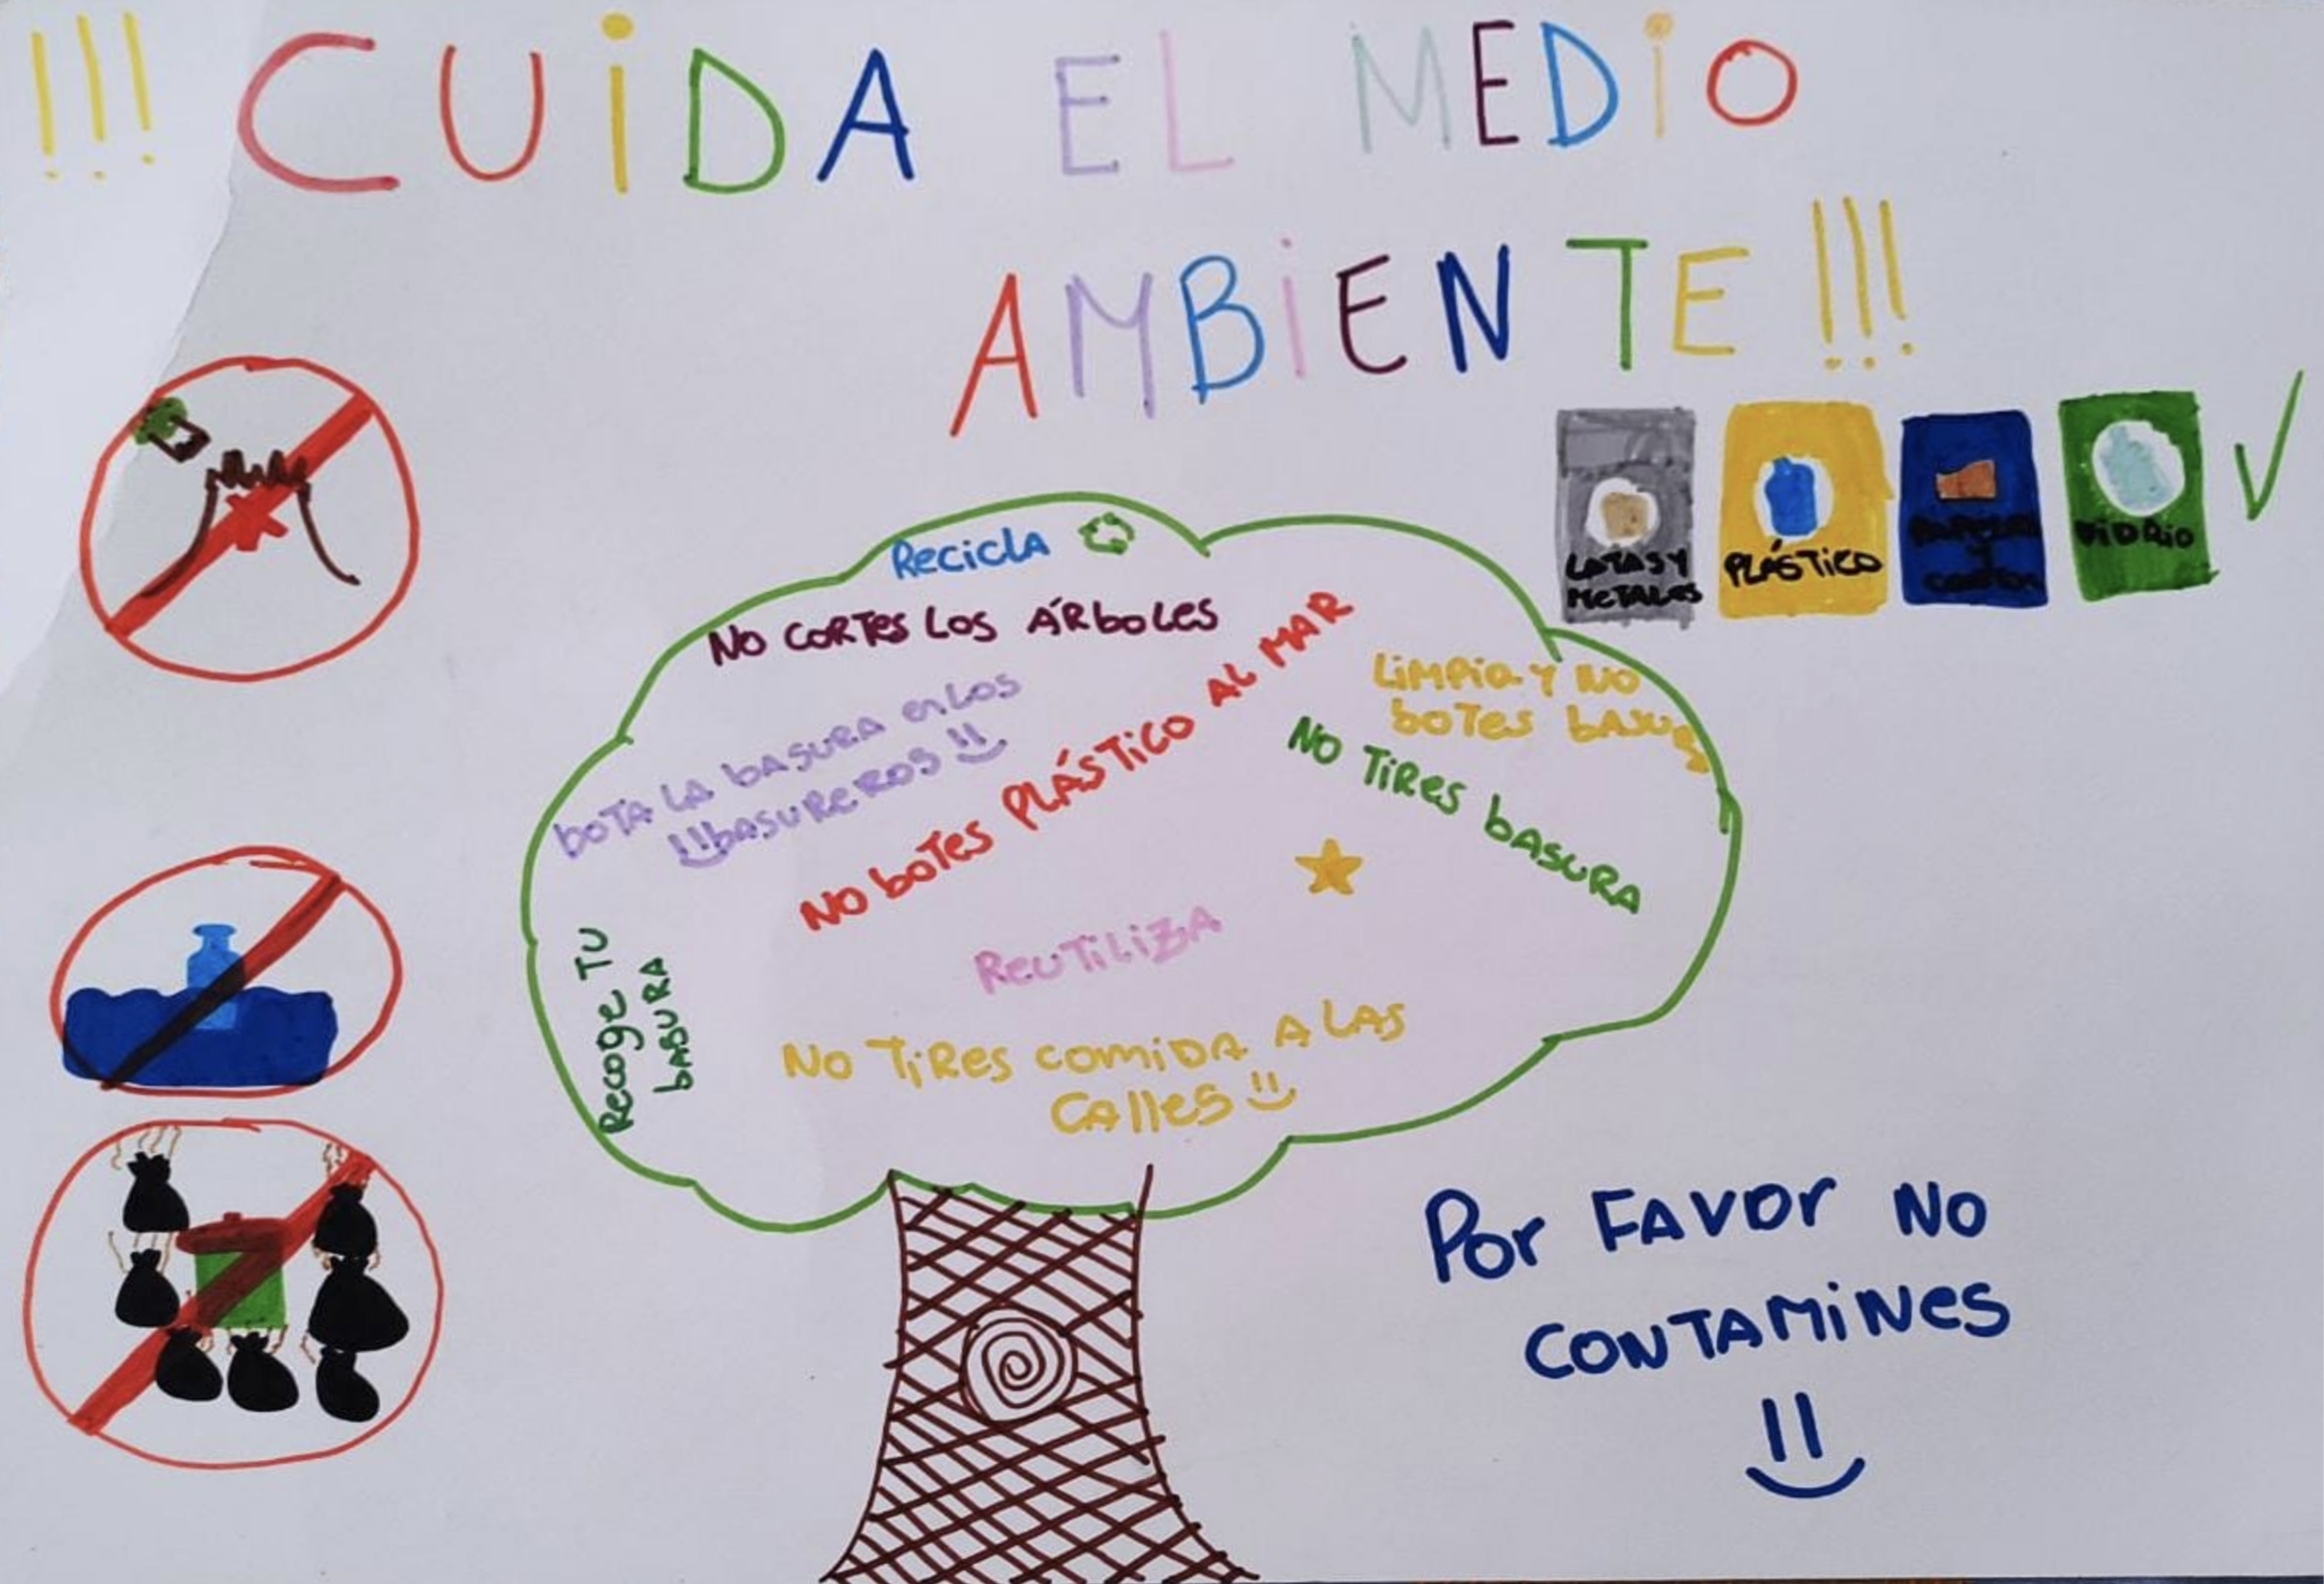 !!! CUIDA EL MEDIO
AMBIENTE !!!
LATAS Y
METALES
PLÁSTICO
Y
VIDRIO
Recicla
NO CORTES LOS ÁRBOLES
BOTA LA BASURA EN LOS
BASUREROS
NO BOTES PLÁSTICO AL MAR
LIMPIA Y NO
BOTES BASURA
NO TIRES BASURA
REUTILIZA
Recoge TU
BASURA
NO TIRES COMIDA A LAS
CALLES
POR FAVOR NO
CONTAMINES